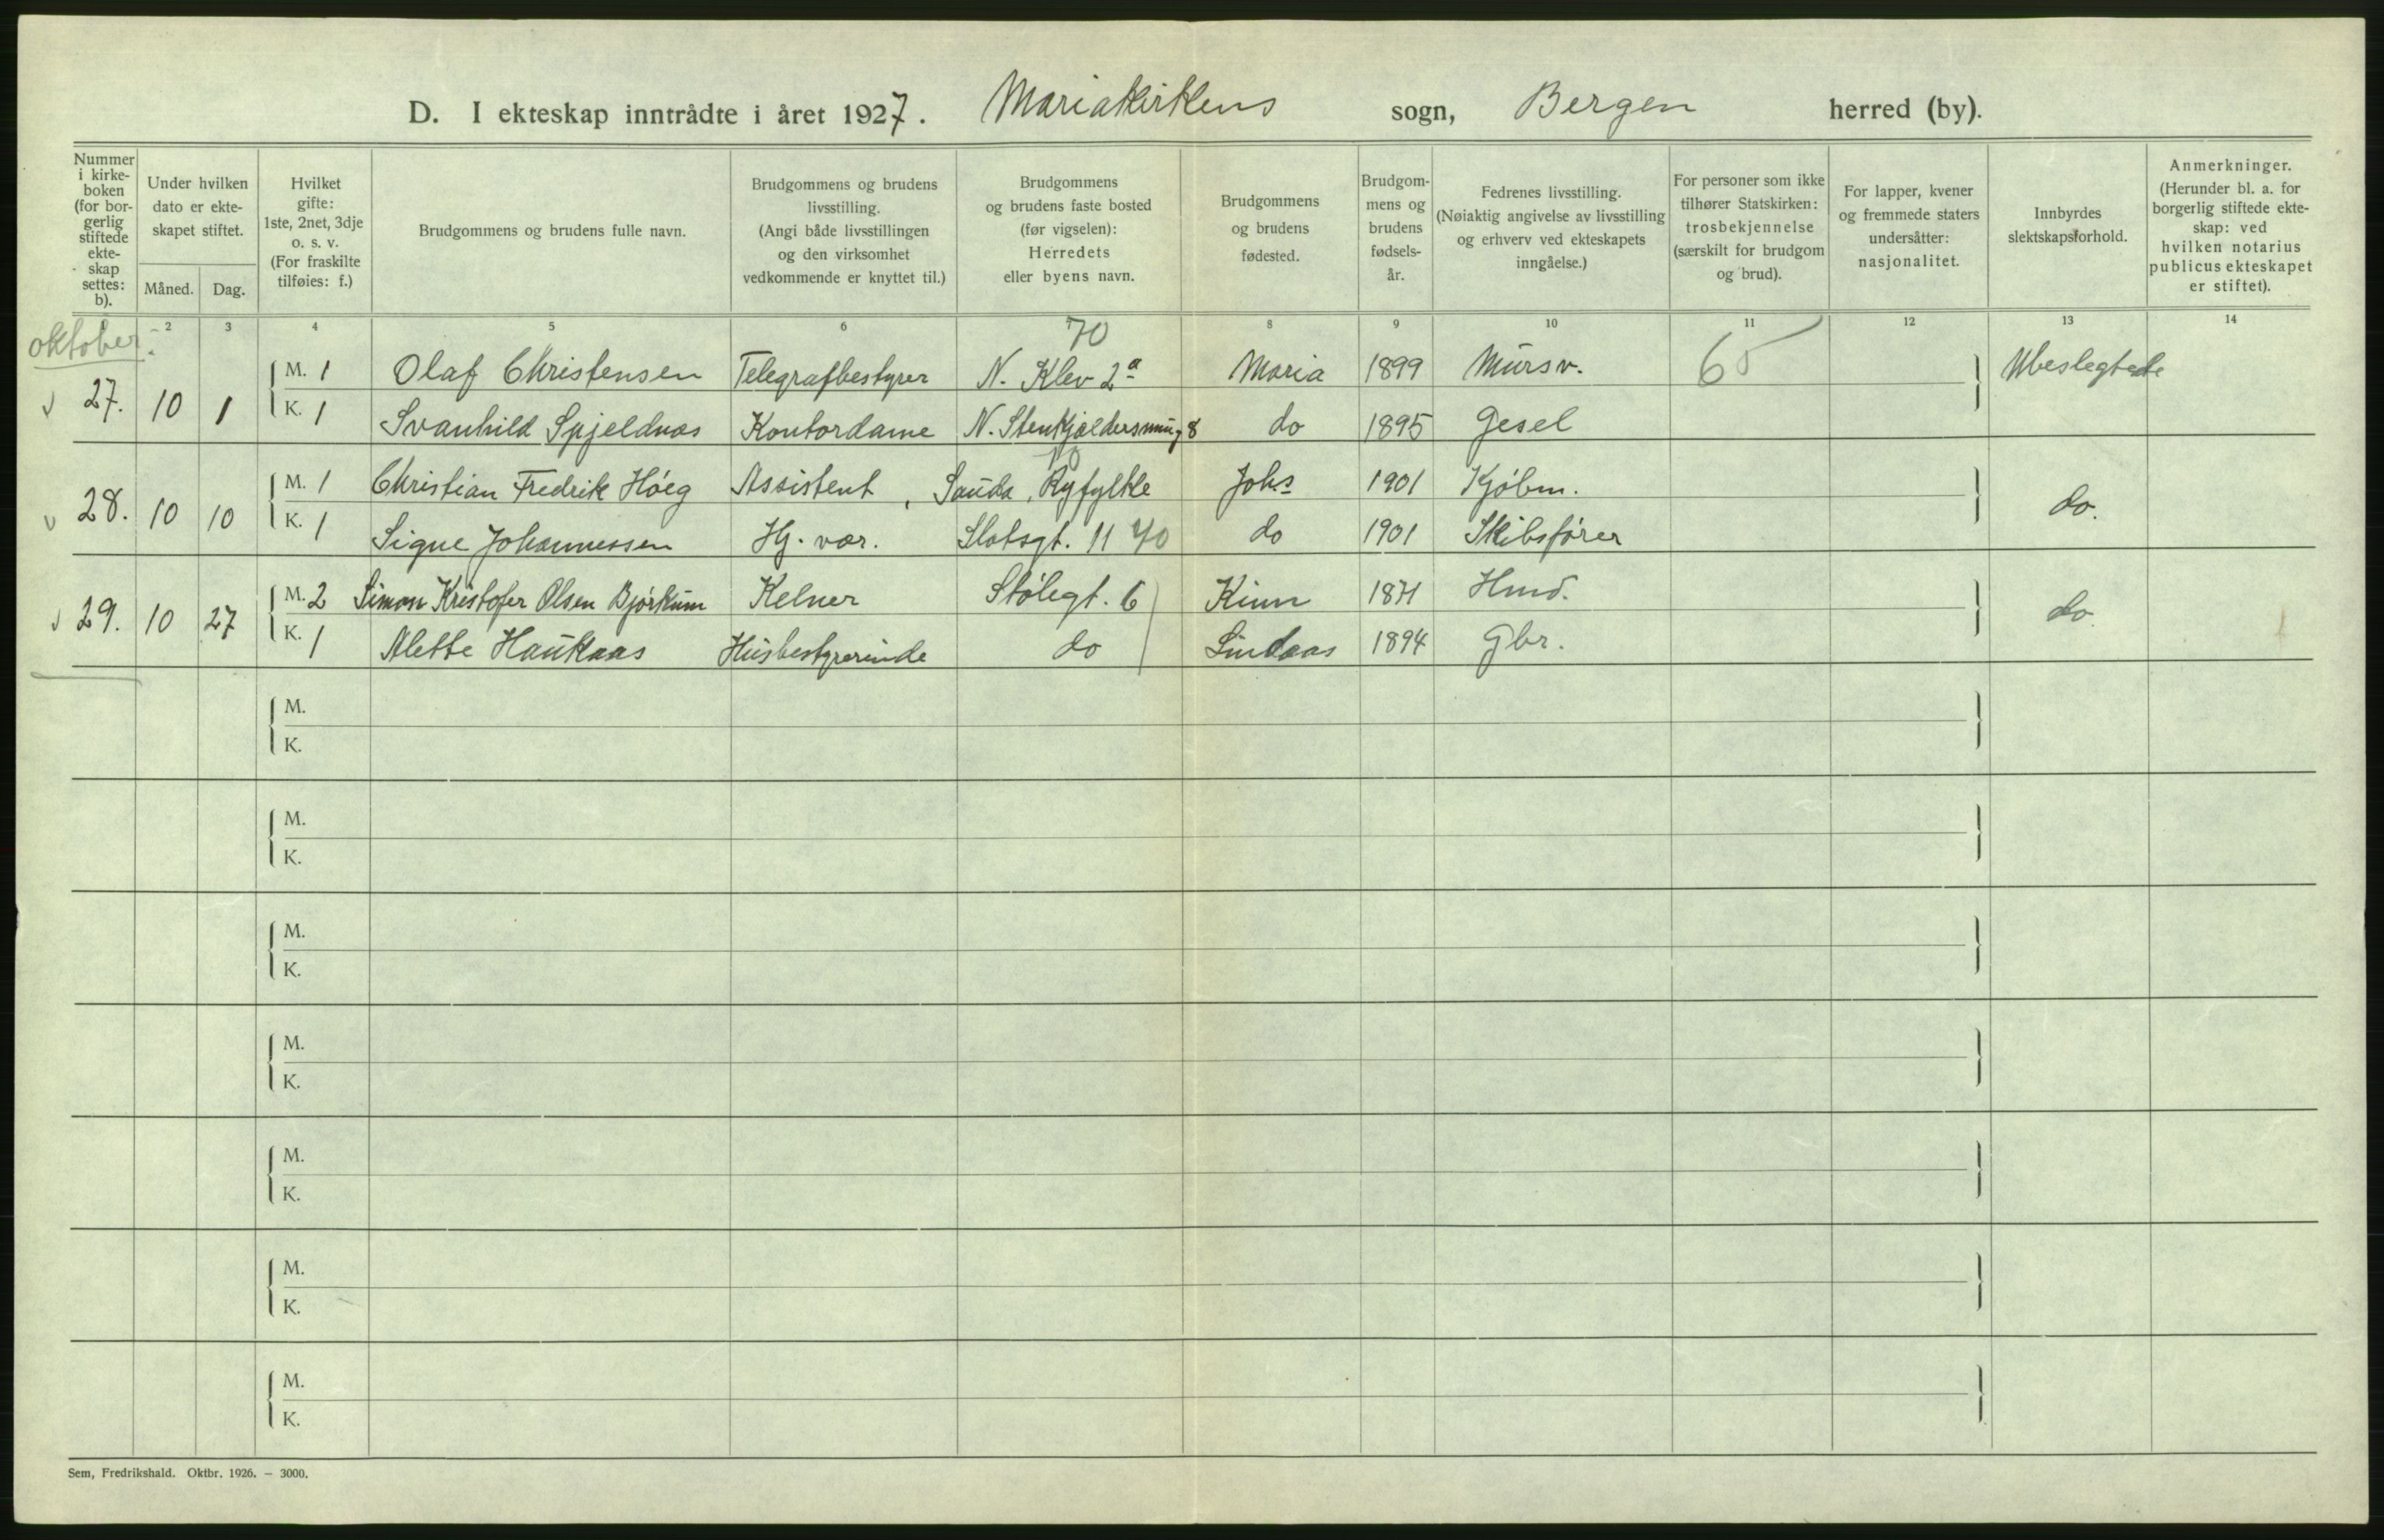 D. I ekteskap inntrådte i året 1927. Mariakirkens sogn, Bergen herred (by).
Nummer i kirke- boken (for bor- gerlig stiftede ekte- skap settes: b).
Under hvilken dato er ekte- skapet stiftet.
Måned. Dag.
Hvilket gifte: 1ste, 2net, 3dje o. s. v. (For fraskilte tilføies: f.)
Brudgommens og brudens fulle navn.
Brudgommens og brudens livsstilling. (Angi både livsstillingen og den virksomhet vedkommende er knyttet til.)
Brudgommens og brudens faste bosted (før vigselen): Herredets eller byens navn.
Brudgommens og brudens fødested.
Brudgom- mens og brudens fødsels- år.
Fedrenes livsstilling. (Nøiaktig angivelse av livsstilling og erhverv ved ekteskapets inngåelse.)
For personer som ikke tilhører Statskirken: trosbekjennelse (særskilt for brudgom og brud).
For lapper, kvener og fremmede staters undersåtter: nasjonalitet.
Innbyrdes slektskapsforhold.
Anmerkninger. (Herunder bl. a. for borgerlig stiftede ekte- skap: ved hvilken notarius publicus ekteskapet er stiftet).
2 3 4 5 6 8 9 10 11 12 13 14
oktober. 70
27. 10 1 M. 1 Olaf Christensen Telegrafbestyrer N. Klev 2a Maria 1899 Mursv. 65 Ubeslegtede
K. 1 Svanhild Spjeldnæs Kontordame N. Stenkjældersmug 8 do 1895 Gesel
70
28. 10 10 M. 1 Christian Fredrik Høeg Assistent, Sauda, Ryfylke Johs 1901 Kjøbm. do.
K. 1 Signe Johannessen Hj. vær. Slotsgt. 11 70 do 1901 Skibsfører
29. 10 27 M. 2 Simon Kristofer Olsen Bjørkum Kelner Stølegt. 6 Kinn 1871 Hmd. do.
K. 1 Alette Haukaas Husbestyrerinde do Lindaas 1894 Gbr.
M.
K.
M.
K.
M.
K.
M.
K.
M.
K.
M.
K.
M.
K.
Sem, Fredrikshald. Oktbr. 1926. — 3000.